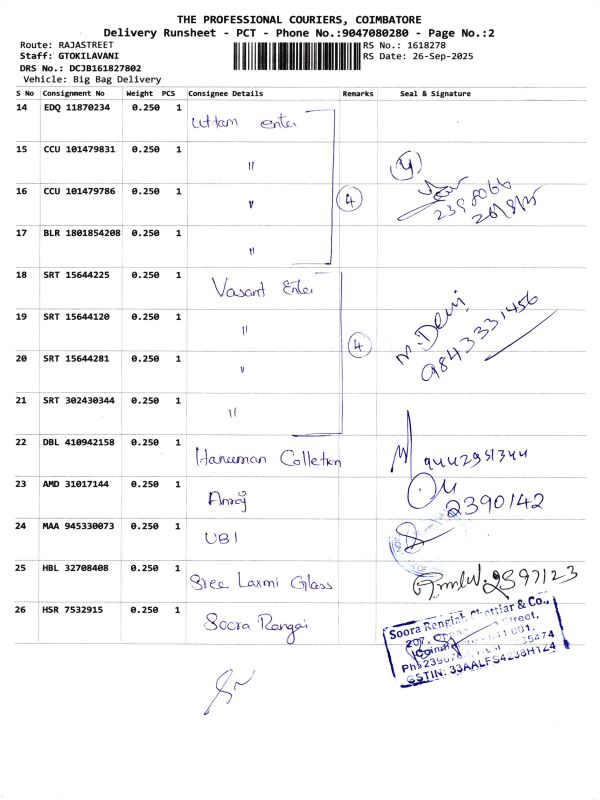 THE PROFESSIONAL COURIERS, COIMBATORE
Delivery Runsheet - PCT - Phone No.:9047080280 - Page No.:2
Route: RAJASTREET
Staff: GTOKILAVANI
DRS No.: DCJB161827802
Vehicle: Big Bag Delivery
RS No.: 1618278
RS Date: 26-Sep-2025
S No Consignment No Weight PCS Consignee Details Remarks Seal & Signature
14 EDQ 11870234 0.250 1 Uttam enter
15 CCU 101479831 0.250 1 "
4
16 CCU 101479786 0.250 1 " 4
2398066
26/9/25
17 BLR 1801854208 0.250 1 "
18 SRT 15644225 0.250 1 Vasant Enter
19 SRT 15644120 0.250 1 "
M. Devi
9843331456
20 SRT 15644281 0.250 1 " 4
21 SRT 302430344 0.250 1 "
22 DBL 410942158 0.250 1 Hanuman Colletion 9442951344
23 AMD 31017144 0.250 1 2390142
24 MAA 945330073 0.250 1 UBI
25 HBL 32708408 0.250 1 Sree Laxmi Glass 2597123
26 HSR 7532915 0.250 1 Soora Rangai
Soora Rengiah Chettiar & Co.,
207, Street,
GSTIN: 33AALFS4238H1Z4